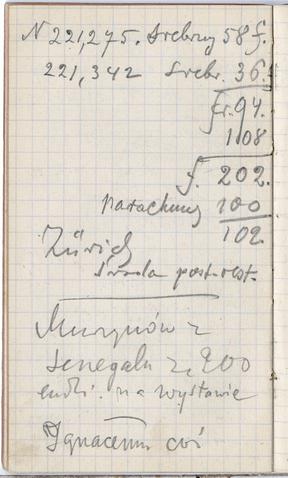 N 221,275. srebrny 58 f.
221,342 srebr. 36.
fr. 94.
108
f. 202.
rachuny 100
102.
Zürich
środa post. rest.
Murzynów z
Senegalu z 200
ludzi. na wystawie
Ignacemu coś